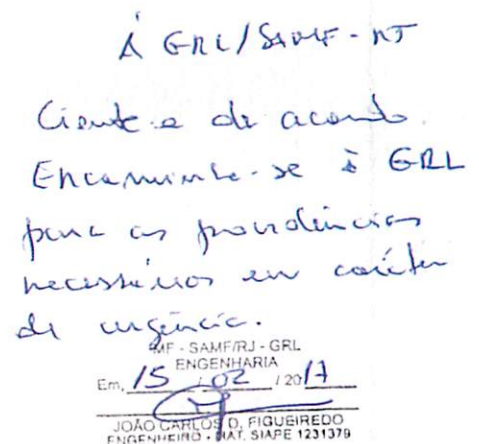 À GRL/SAMF-RJ
Ciente e de acordo.
Encaminhe-se à GRL
para as providências
necessárias em caráter
de urgência.
MF - SAMF/RJ - GRL
ENGENHARIA
Em, 15 / 02 / 2017
JOÃO CARLOS D. FIGUEIREDO
ENGENHEIRO - MAT. SIAPE 1231379